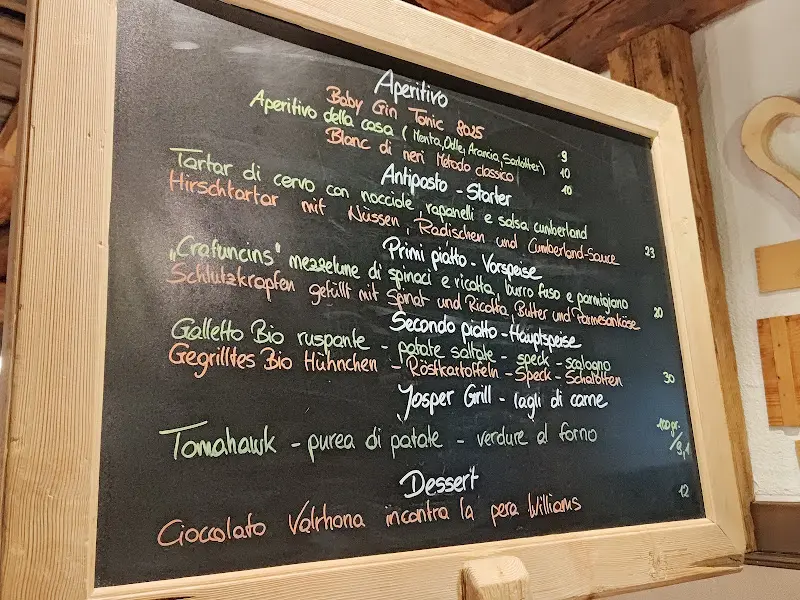 Aperitivo
Baby Gin Tonic 8025 9
Aperitivo della casa (Menta, Odle, Arancia, Sanbitter) 10
Blanc di neri Metodo classico 10
Antipasto - Starter
Tartar di cervo con nocciole, rapanelli e salsa cumberland
Hirschtartar mit Nüssen, Radischen und Cumberland-Sauce 23
Primi piatto - Vorspeise
„Crafuncins" mezzelune di spinaci e ricotta, burro fuso e parmigiano
Schlutzkrapfen gefüllt mit Spinat und Ricotta, Butter und Parmesankäse 20
Secondo piatto - Hauptspeise
Galletto Bio ruspante - patate saltate - speck - scalogno
Gegrilltes Bio Hühnchen - Röstkartoffeln - Speck - Schalotten 30
Josper Grill - tagli di carne
Tomahawk - purea di patate - verdure al forno 100gr. /9,1
Dessert
Cioccolato Valrhona incontra la pera Williams 12